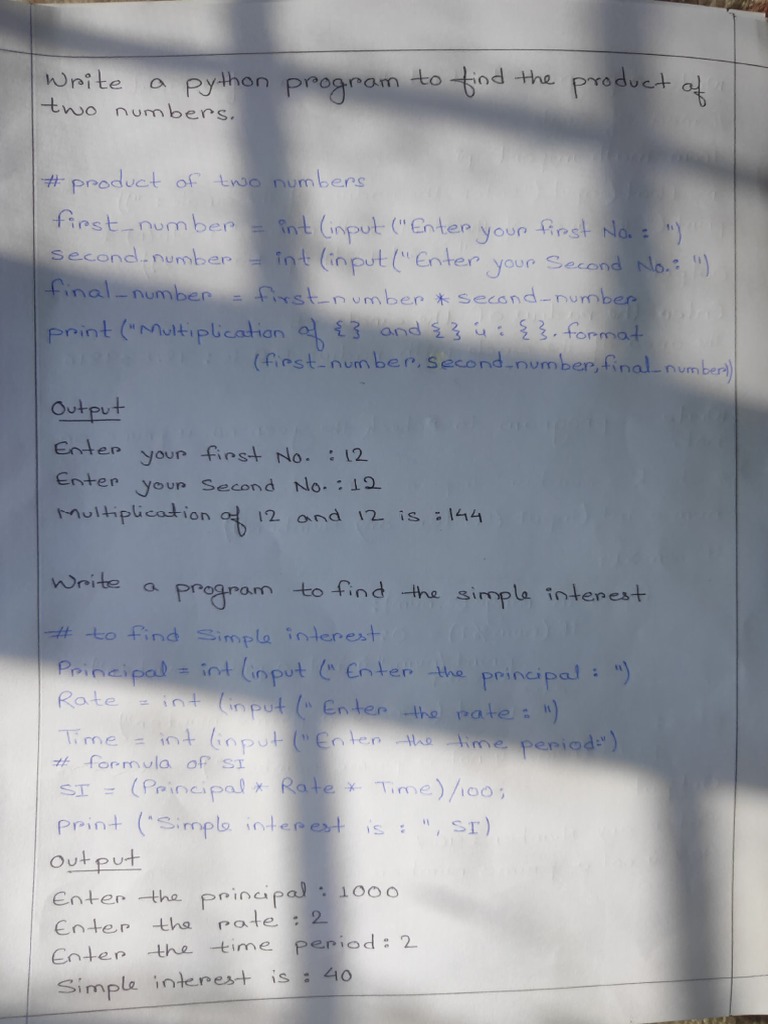 Write a python program to find the product of
two numbers.
# product of two numbers
first_number = int (input ("Enter your first No. : ")
second_number = int (input ("Enter your Second No.: ")
final_number = first_number * second_number
print ("Multiplication of {} and {} is : {}. format
(first_number, second_number, final_number))
Output
Enter your first No. : 12
Enter your Second No. : 12
Multiplication of 12 and 12 is : 144
Write a program to find the simple interest
# to find Simple interest
Principal = int (input (" Enter the principal : ")
Rate = int (input (" Enter the rate : ")
Time = int (input ("Enter the time period:")
# formula of SI
SI = (Principal * Rate * Time) /100;
print ("Simple interest is : ", SI)
Output
Enter the principal : 1000
Enter the rate : 2
Enter the time period : 2
Simple interest is : 40